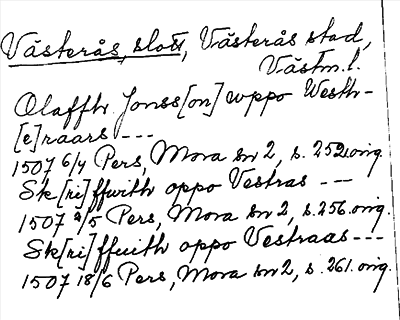 Västerås, slott, Västerås stad,
Västm. l.
Olaffhr Jonss[on] wppo Westh-
[e]raars ---
1507 6/4 Pers, Mora sn 2, s. 252 orig.
Sk[ri]ffwith oppo Vestras ---
1507 2/5 Pers, Mora sn 2, s. 256 orig.
Sk[ri]ffuith oppo Vestraas ---
1507 18/6 Pers, Mora sn 2, s. 261. orig.